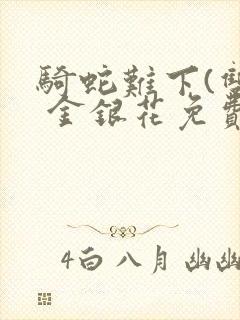 騎蛇難下(雙
金銀花免費
4白八月幽幽